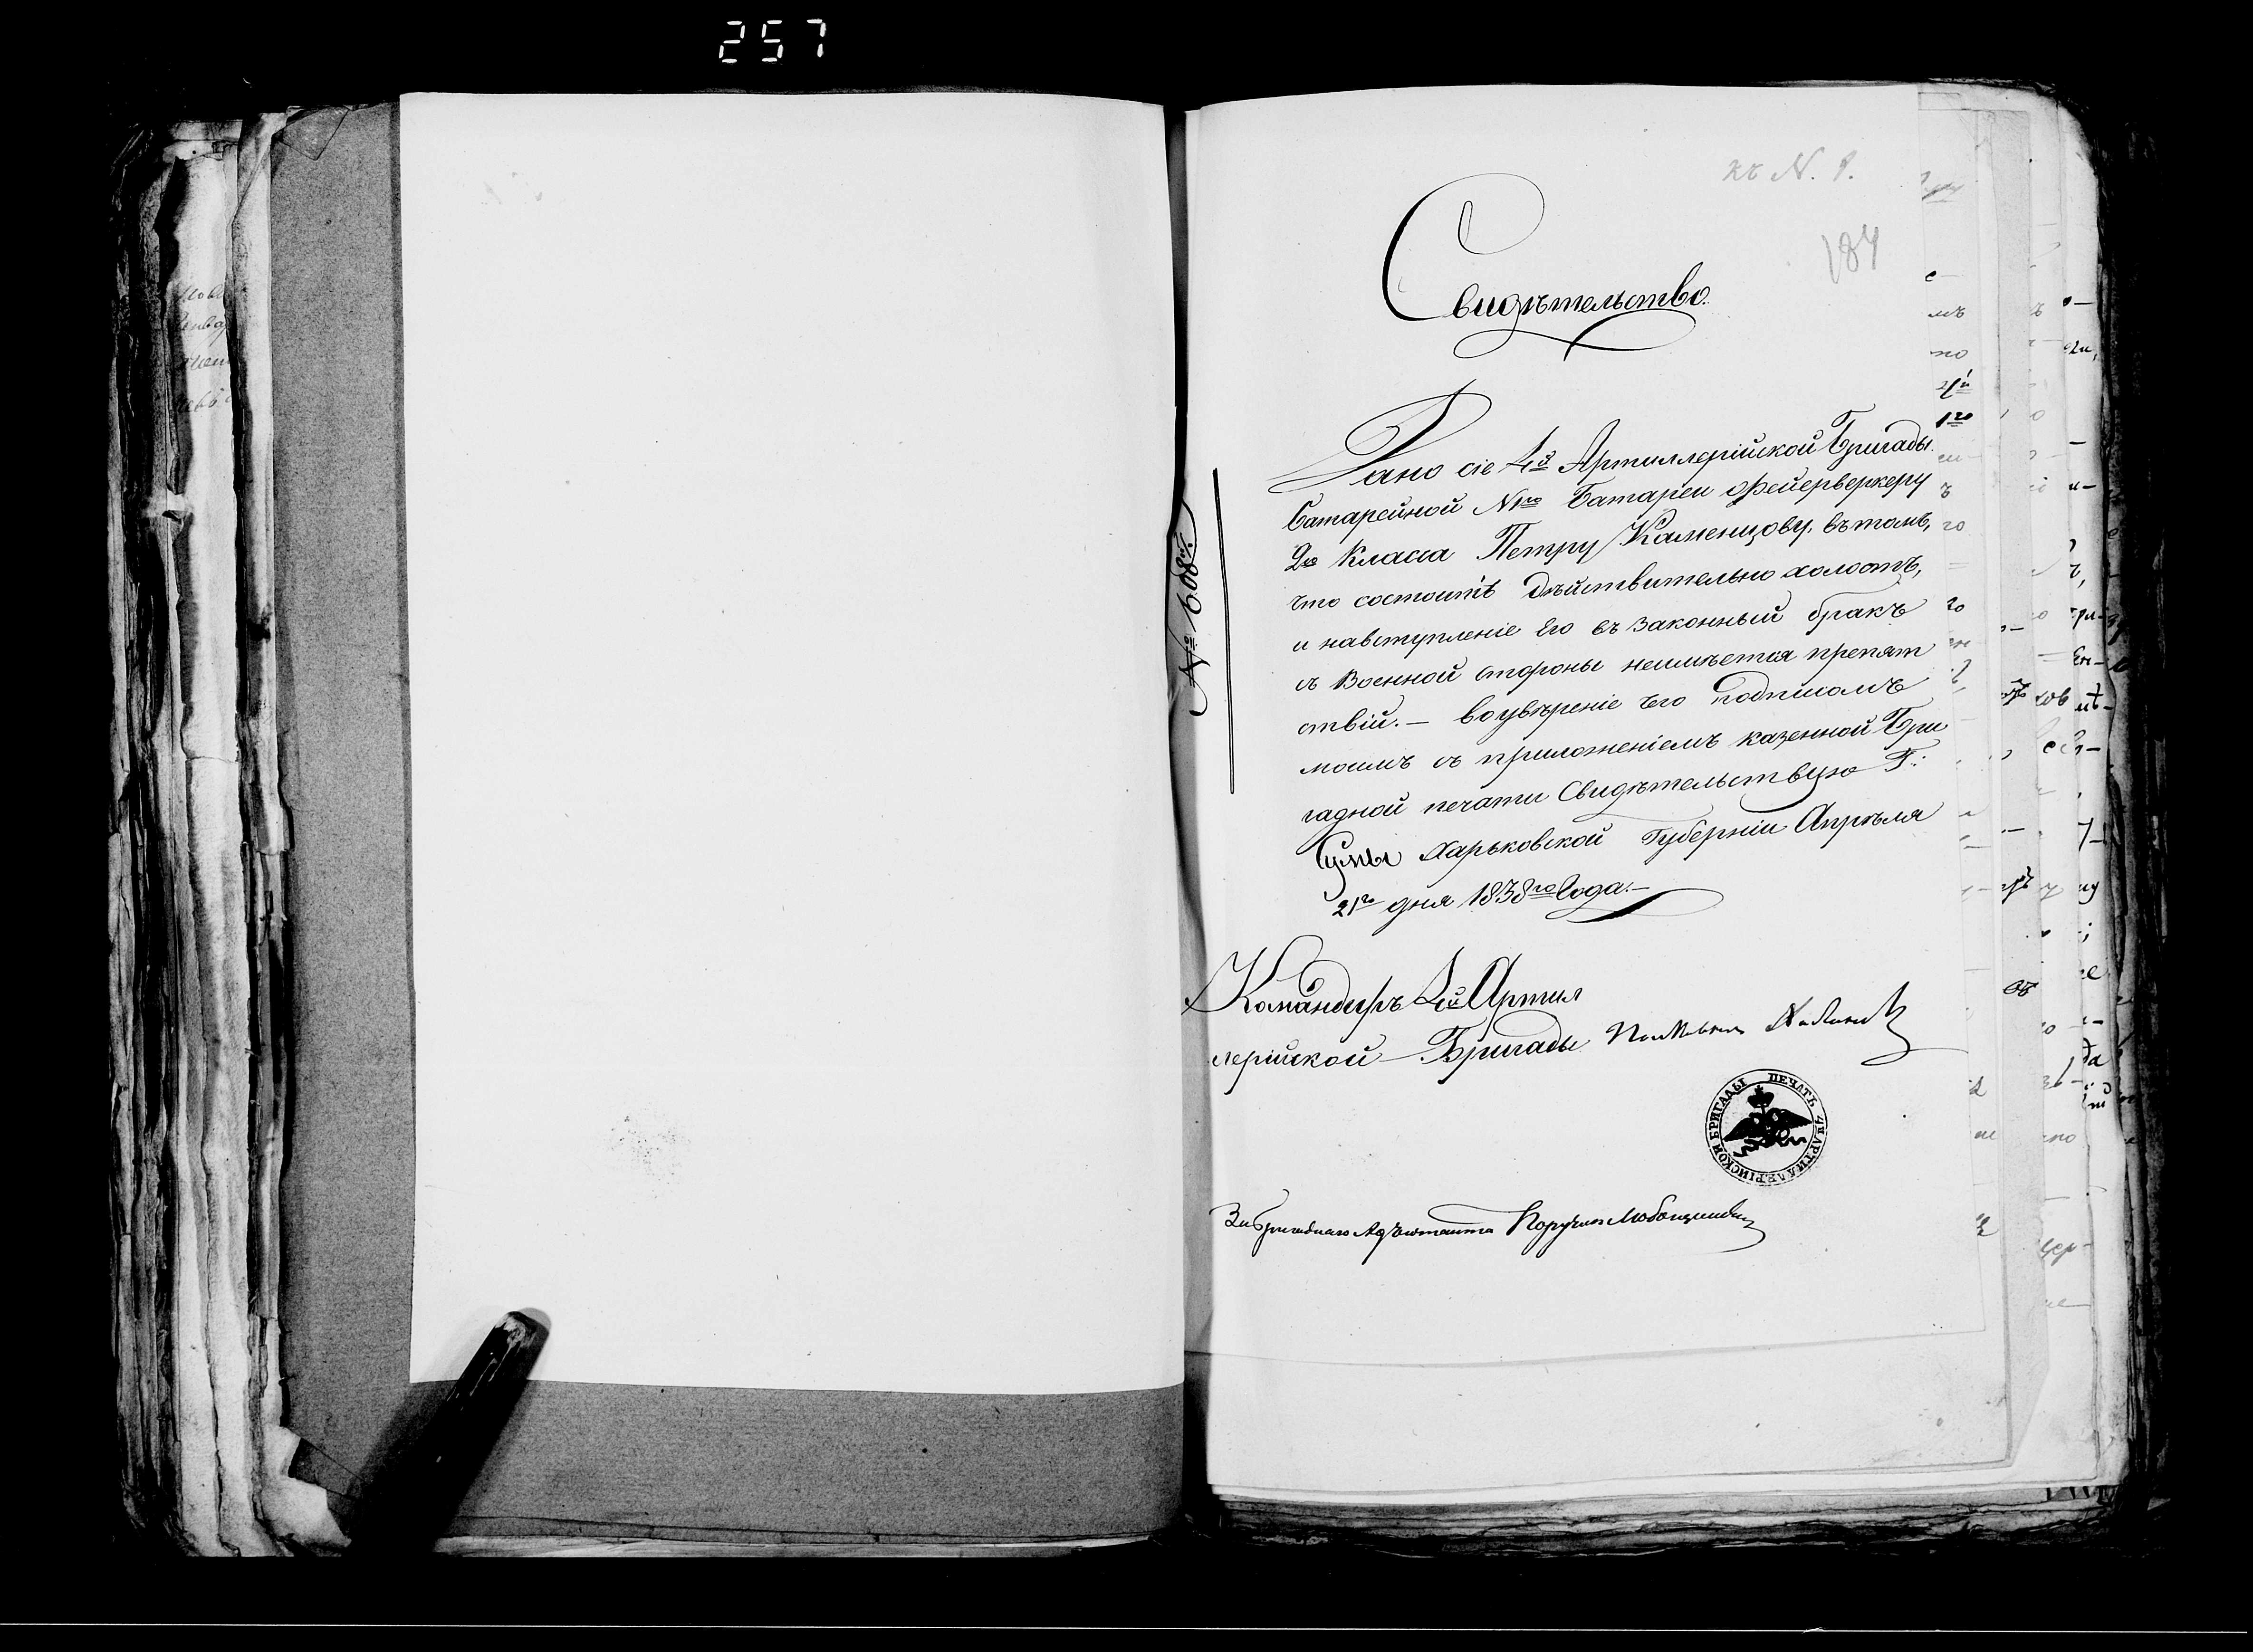 257
къ N. 9.
184
Свидѣтельство.
№ 608.
Дано сіе 4й Артиллерійской Бригады
батарейной N1го Батареи Фейерверкеру
2го Класса Петру Каменцову, въ томъ,
что состоитъ дѣйствительно холостъ,
и навступленіе его въ законный бракъ
съ Военной стороны неимѣется препят
ствій. — Воувѣреніе чего подписомъ
моимъ съ приложеніемъ казенной Бри
гадной печати Свидѣтельствую Г:
Сумы Харьковской Губерніи Апрѣля
21го дня 1838го Года. —
Командиръ 4й Артил
лерійской Бригады Полковникъ
ПЕЧАТЬ 4Й АРТИЛЛЕРІЙСКОЙ БРИГАДЫ
За Бригаднаго Адъютанта Поручикъ